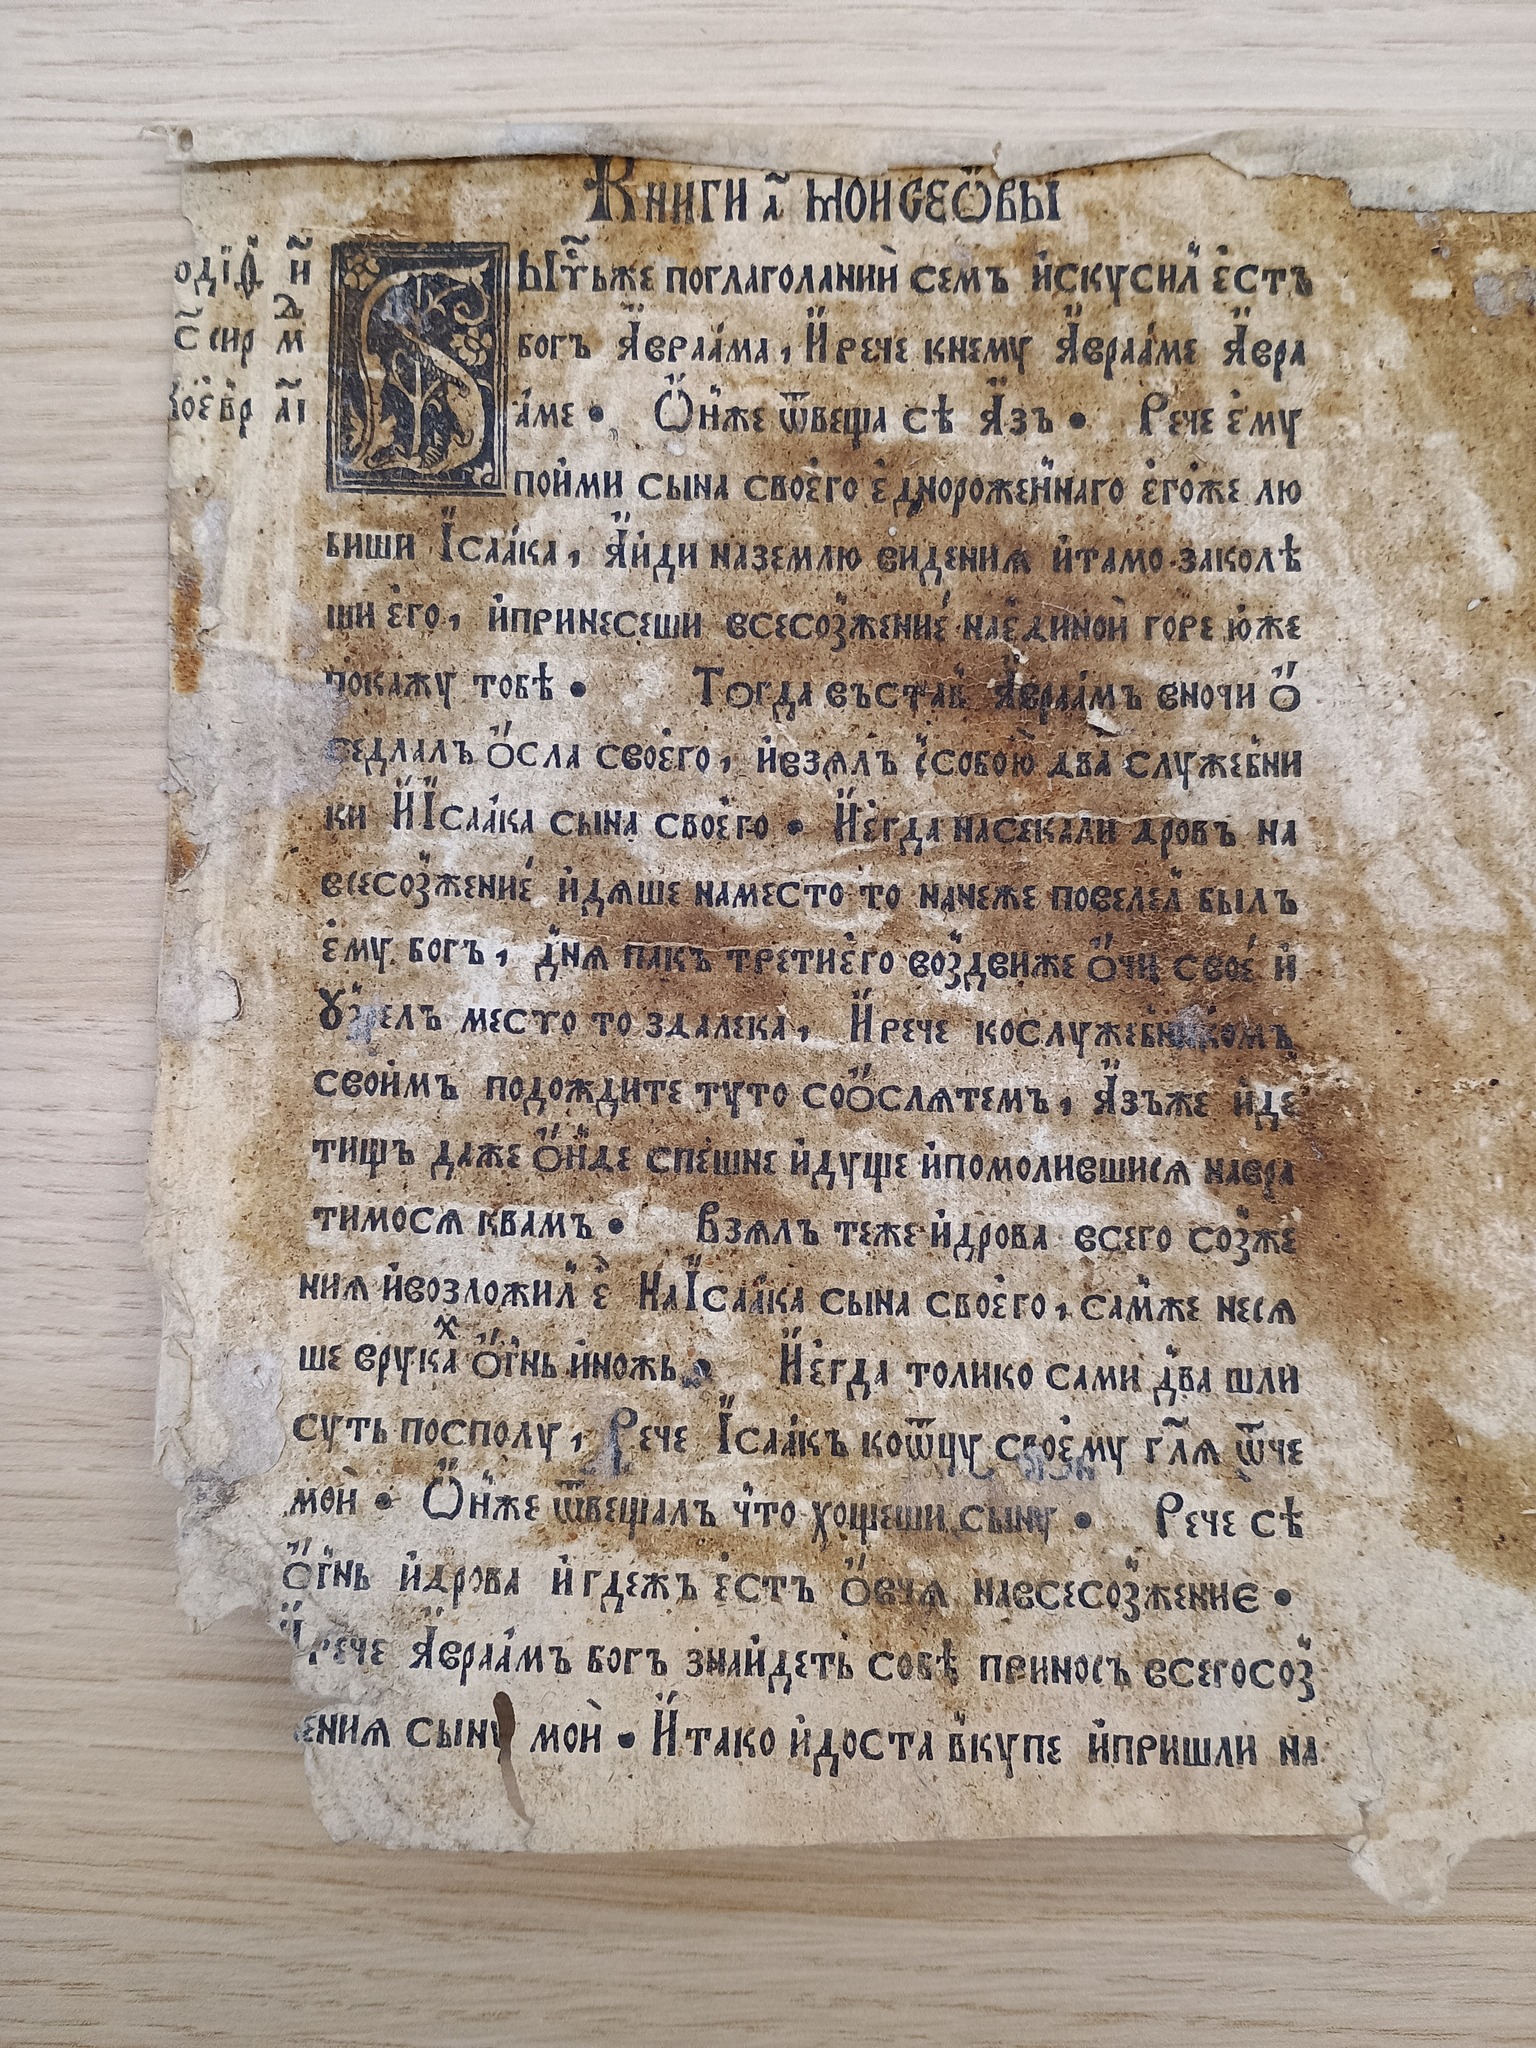 Книги а҃ моисеѡвы
одіѳ и҃
сир м҃д
коевр а҃і
Бысть же поглаголании сем искусил естъ
богъ Авраама, И рече кнему Аврааме Авра
аме • Онже ѿвеща сѣ азъ • Рече ему
поими сына своего единороженнаго егоже лю
биши Ісаака, Аиди наземлю видения итамо заколѣ
ши его, ипринесеши всесозжение наединои горе юже
покажу тобѣ • Тогда въстав Авраамъ вночи о
седлалъ осла своего, ивзялъ ссобою два служебни
ки И Ісаака сына своего • И егда насекали дровъ на
всесозжение идяше наместо то нанеже повелел былъ
ему богъ, дня пакъ третиего воздвиже очи свое и
узрелъ место то здалека, И рече кослужебникомъ
своимъ подождите туто соослятемъ, Азъже иде
тищъ даже онде спешне идуще ипомолившися навра
тимося квамъ • Взялъ теже идрова всего созже
ния ивозложил е На Ісаака сына своего, самже нося
ше врукахъ огнь иножь • И егда толико сами два шли
суть посполу, Рече Ісаакъ коѿцу своему гл҃я ѿче
мои • Онже ѿвещалъ что хощеши сыну • Рече сѣ
огнь идрова игдежъ естъ овча навсесозжение •
И рече Авраамъ богъ знаидеть собѣ приносъ всегосоз
ения сыну мои • И тако идоста вкупе ипришли на